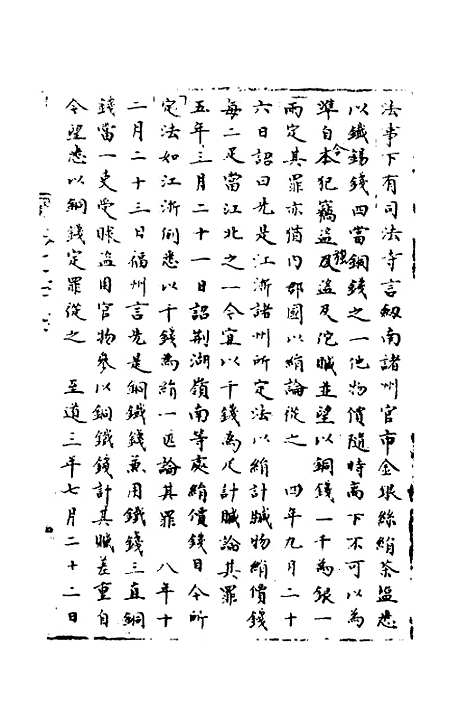 法事下有司法寺言劔南諸州官市金銀絲絹茶盐悉
以鐵錫錢四當銅錢之一他物價隨時髙下不可以為
準自今本犯竊盗及強盗及佗贓並望以銅錢一千為銀一
兩定其罪亦價内郡國以絹論從之　四年九月二十
六日詔曰先是江浙諸州所定法以絹計贓物絹價錢
每二疋當江北之一令宜以千錢為尺計贓論其罪
五年三月二十一日詔荆湖嶺南等處絹價錢自今所
定法如江浙例悉以千錢為絹一疋論其罪　八年十
二月二十三日福州言先是銅鐵錢兼用鐵錢三直銅
錢當一吏受賕盗用官物參以銅鐵錢計其贓差重自
今望悉以銅錢定罪從之　至道三年七月二十二日